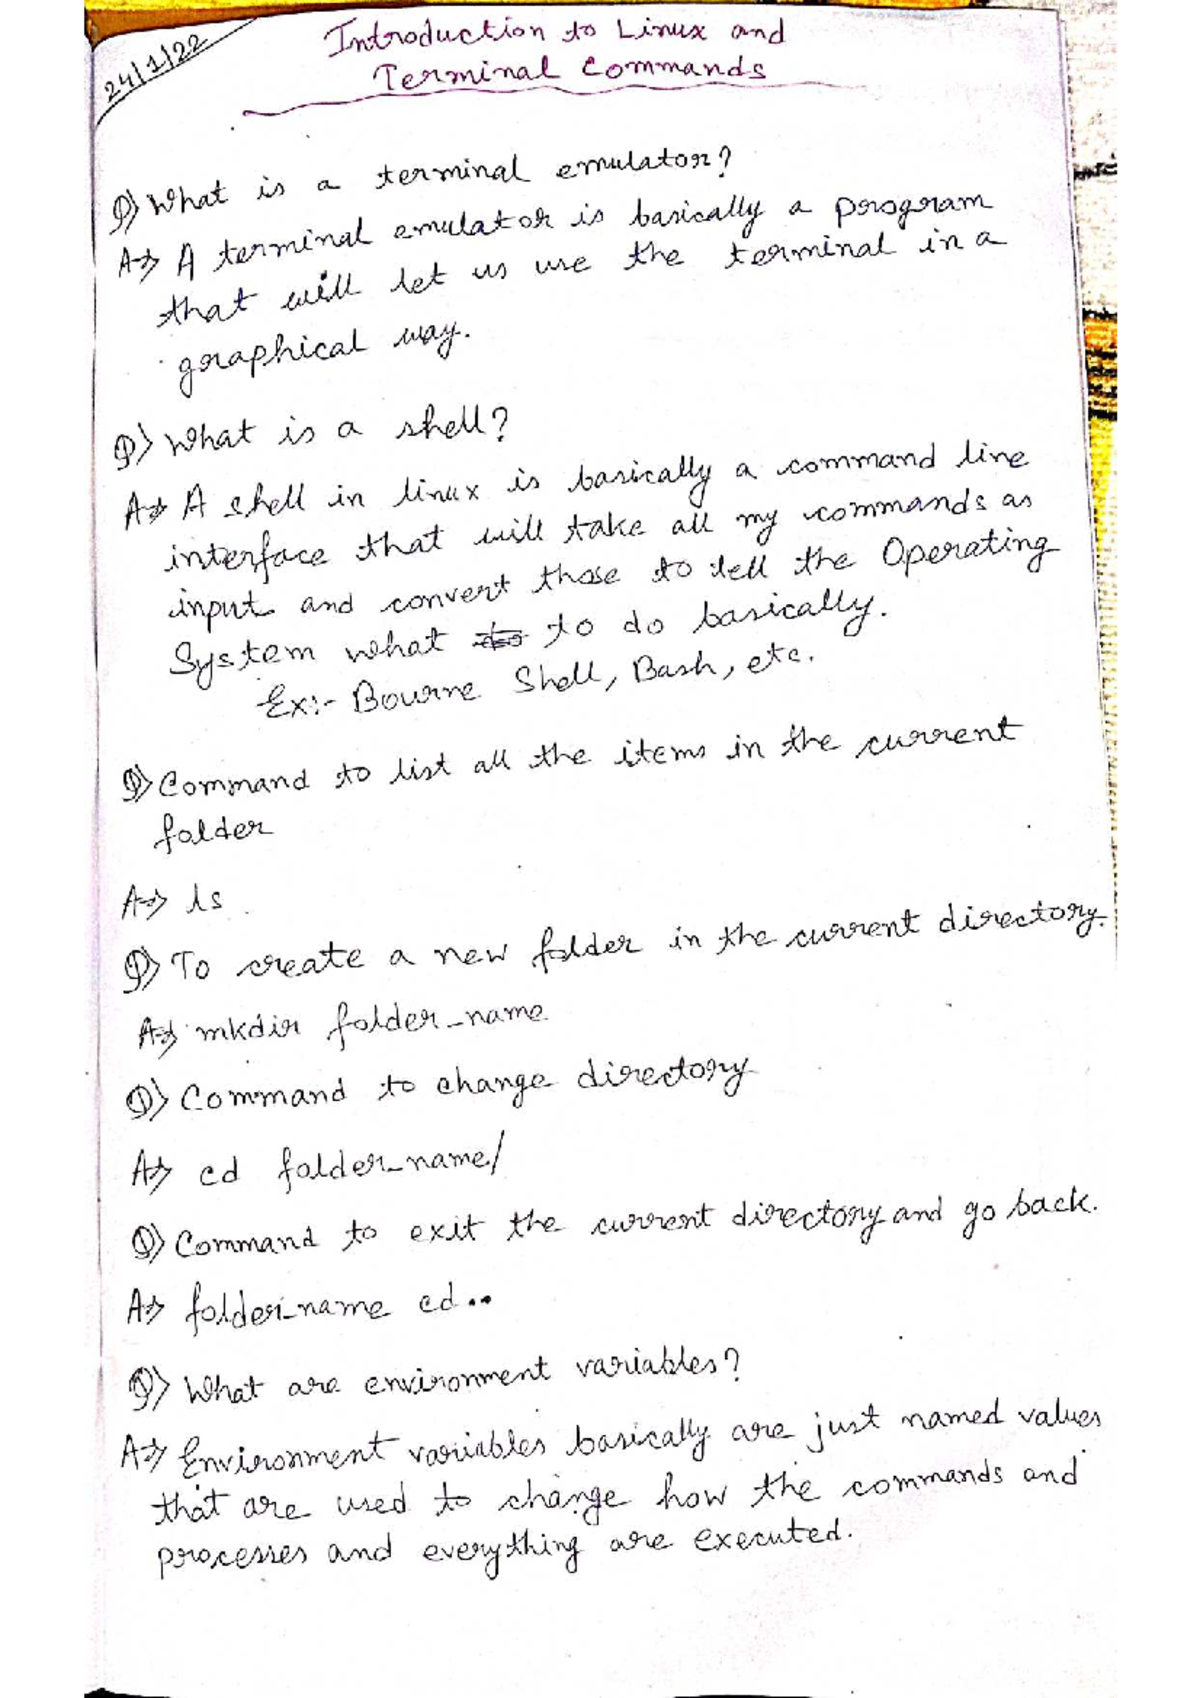 24/1/22
Introduction to Linux and
Terminal Commands
Q) What is a terminal emulator?
A→ A terminal emulator is basically a program
that will let us use the terminal in a
graphical way.
Q) What is a shell?
A→ A shell in linux is basically a command line
interface that will take all my commands as
input and convert those to tell the Operating
System what to do basically.
Ex:- Bourne Shell, Bash, etc.
Q) Command to list all the items in the current
folder
A→ ls
Q) To create a new folder in the current directory.
A→ mkdir folder_name
Q) Command to change directory
A→ cd folder_name/
Q) Command to exit the current directory and go back.
A→ folder_name cd..
Q) What are environment variables?
A→ Environment variables basically are just named values
that are used to change how the commands and
processes and everything are executed.